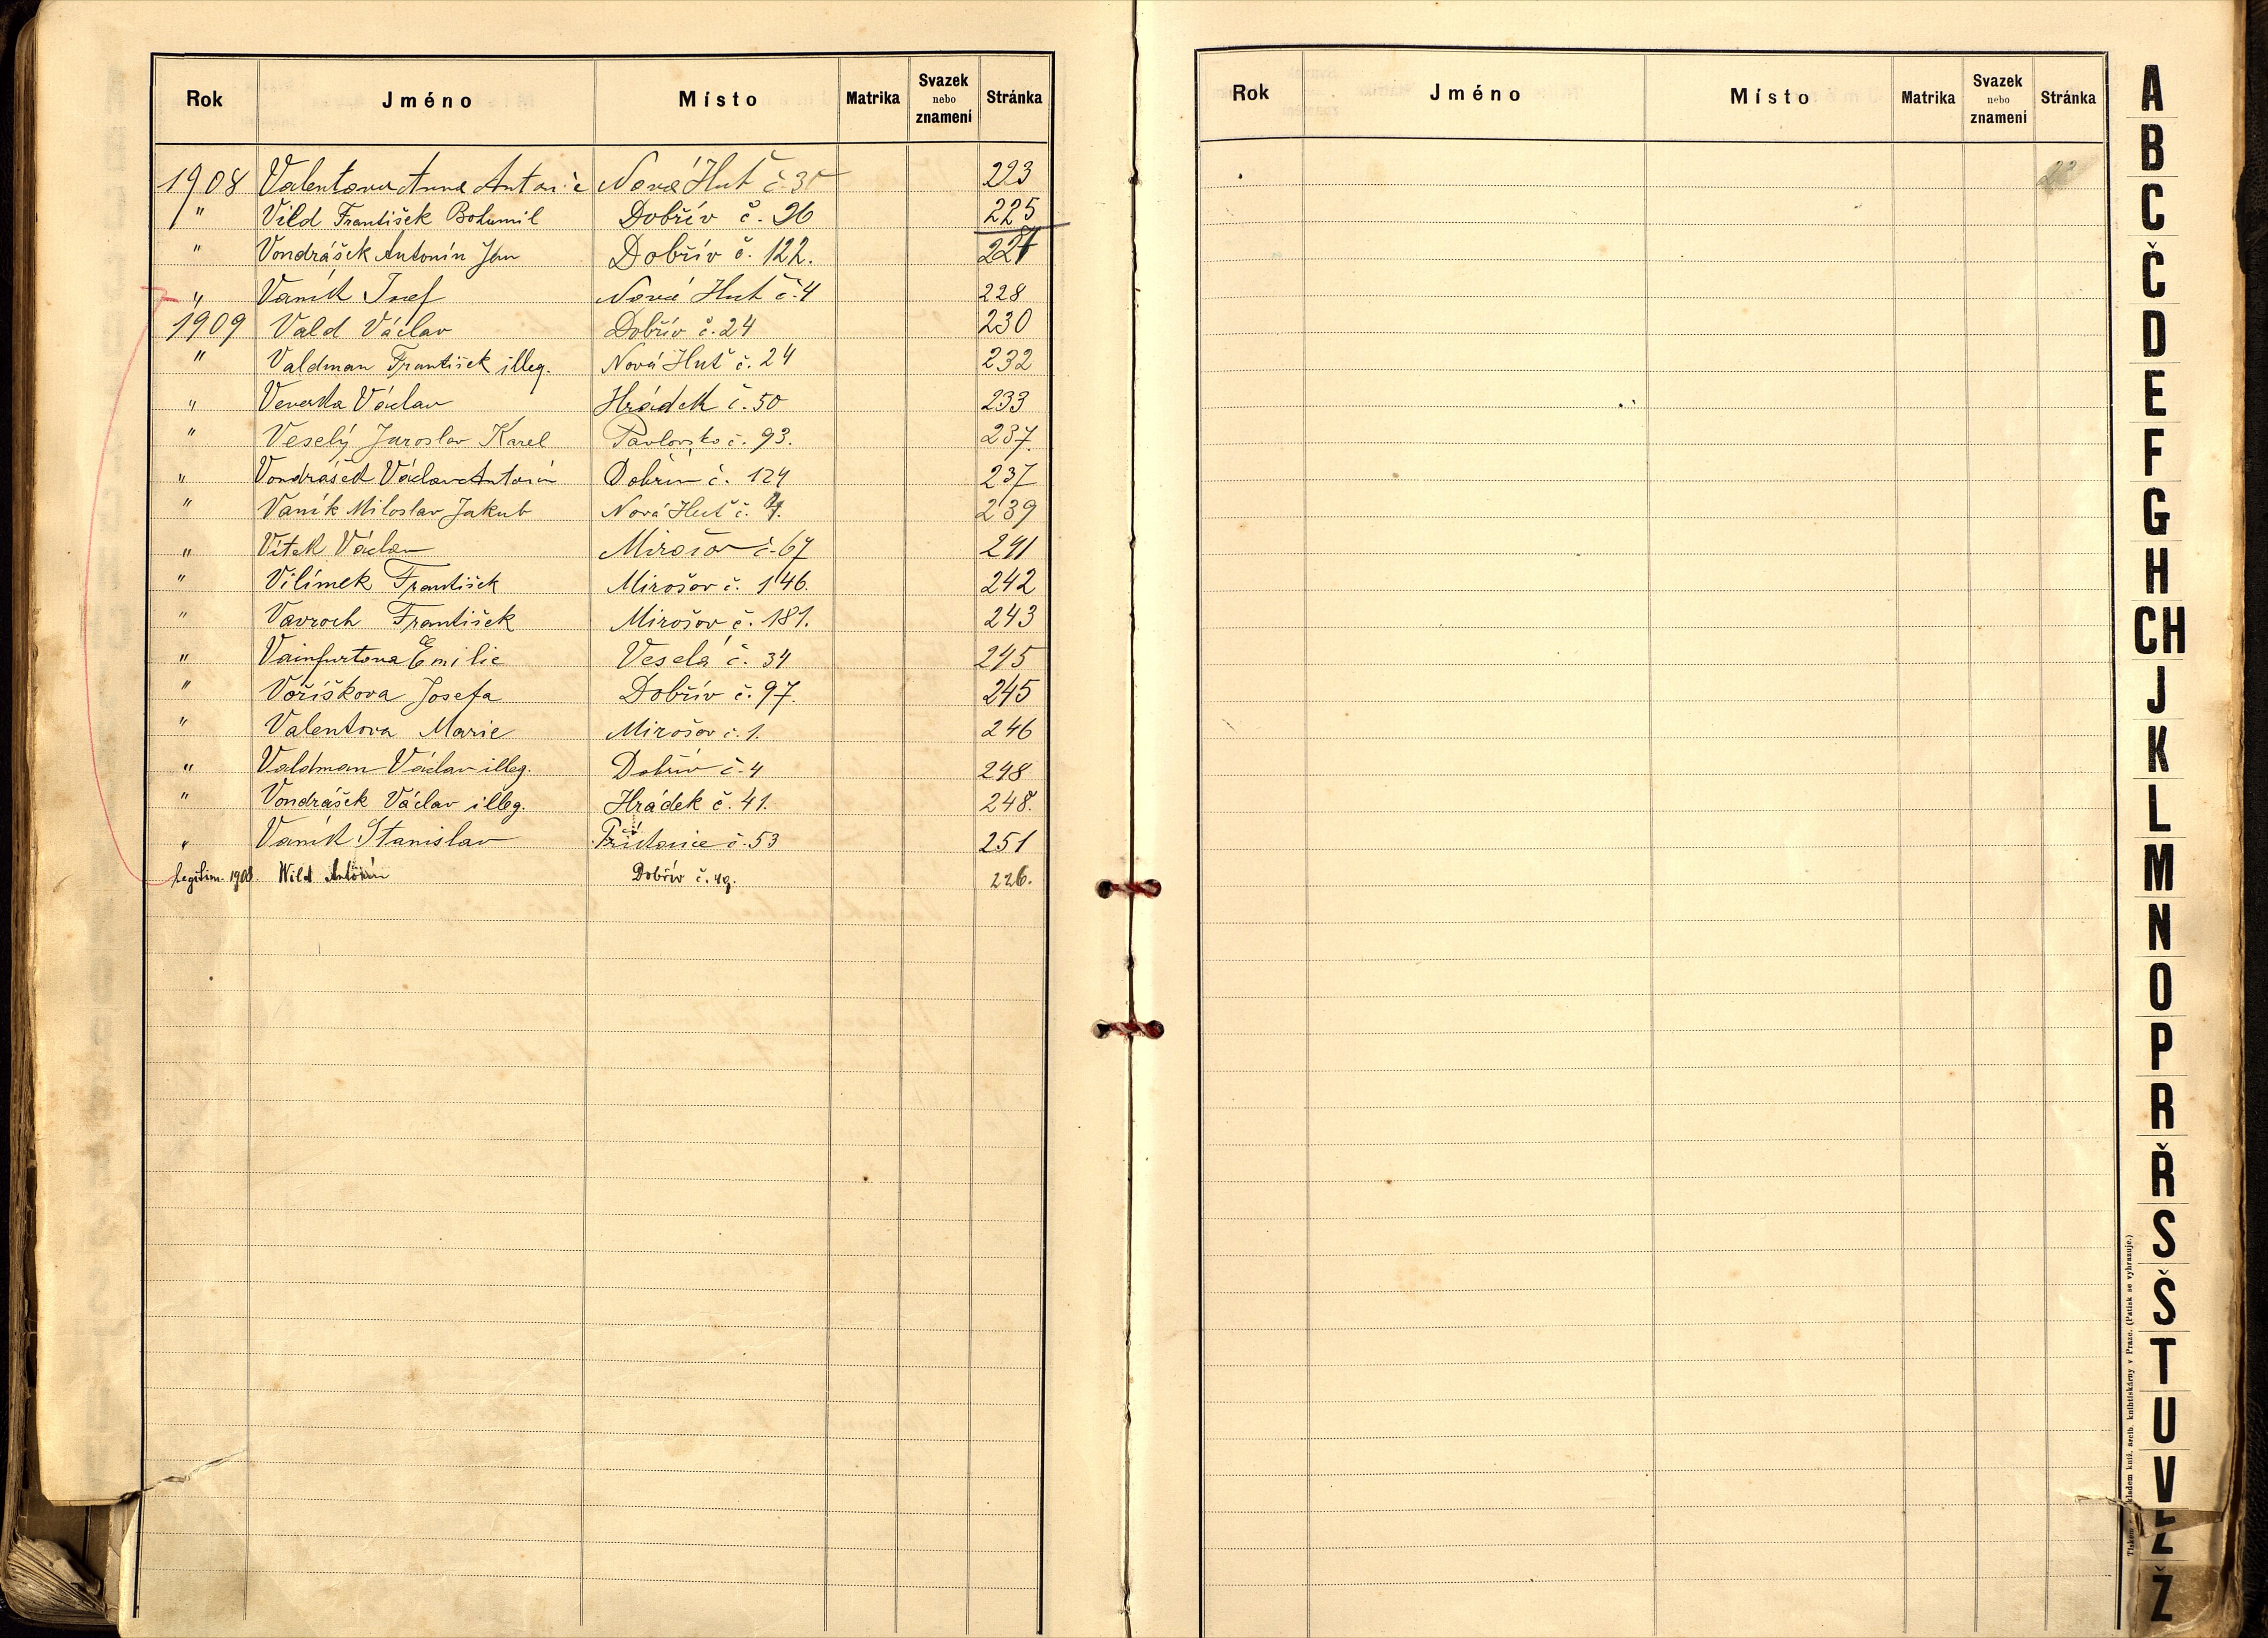 Rok Jméno Místo Matrika Svazek nebo znamení Stránka
1908 Valentova Anna Antonie Nová Huť č. 223
" Vild František Bohumil Dobřív č. 96 225
" Vondrášek Antonín Jan Dobřív č. 122. 227
" Vaník Josef Nová Huť č. 4 228
1909 Vald Václav Dobřív č. 24 230
" Valdman František illeg. Nová Huť č. 24 232
" Veverka Václav Hrádek č. 50 233
" Veselý Jaroslav Karel Pavlovsko č. 93. 237.
" Vondrášek Václav Antonín Dobřív č. 124 237
" Vaník Miloslav Jakub Nová Huť č. 239
" Vítek Václav Mirošov č. 67 241
" Vilímek František Mirošov č. 146. 242
" Vavroch František Mirošov č. 181. 243
" Vainfurtova Emilie Veselá č. 34 245
" Voříškova Josefa Dobřív č. 97. 245
" Valentova Marie Mirošov č. 1. 246
" Valdman Václav illeg. Dobřív č. 4 248
" Vondrášek Václav illeg. Hrádek č. 41. 248.
" Vaník Stanislav č. 53 251
legitim. 1908. Wild Antonín Dobřív č. 49. 226.
Rok Jméno Místo Matrika Svazek nebo znamení Stránka
A
B
C
Č
D
E
F
G
H
CH
J
K
L
M
N
O
P
R
Ř
S
Š
T
U
V
Z
Ž
kladem kniž. arcib. knihtiskárny v Praze. (Patisk se vyhrazuje.)